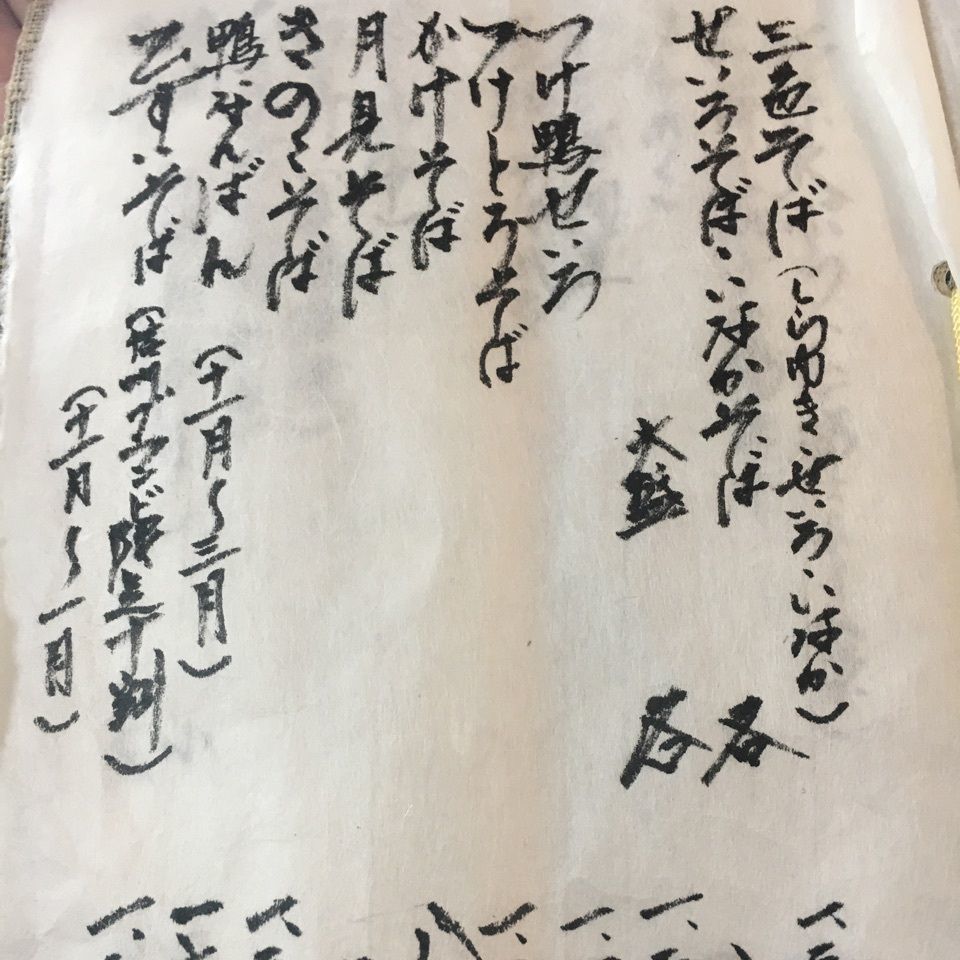 三色そば（しらゆき・せいろ・いなか）
せいろそば・いなかそば 各
大盛 各
つけ鴨せいろ
つけとろそば
かけそば
月見そば
きのこそば
鴨なんばん（十一月〜三月）
そば（信州ブランド
（十一月〜一月）